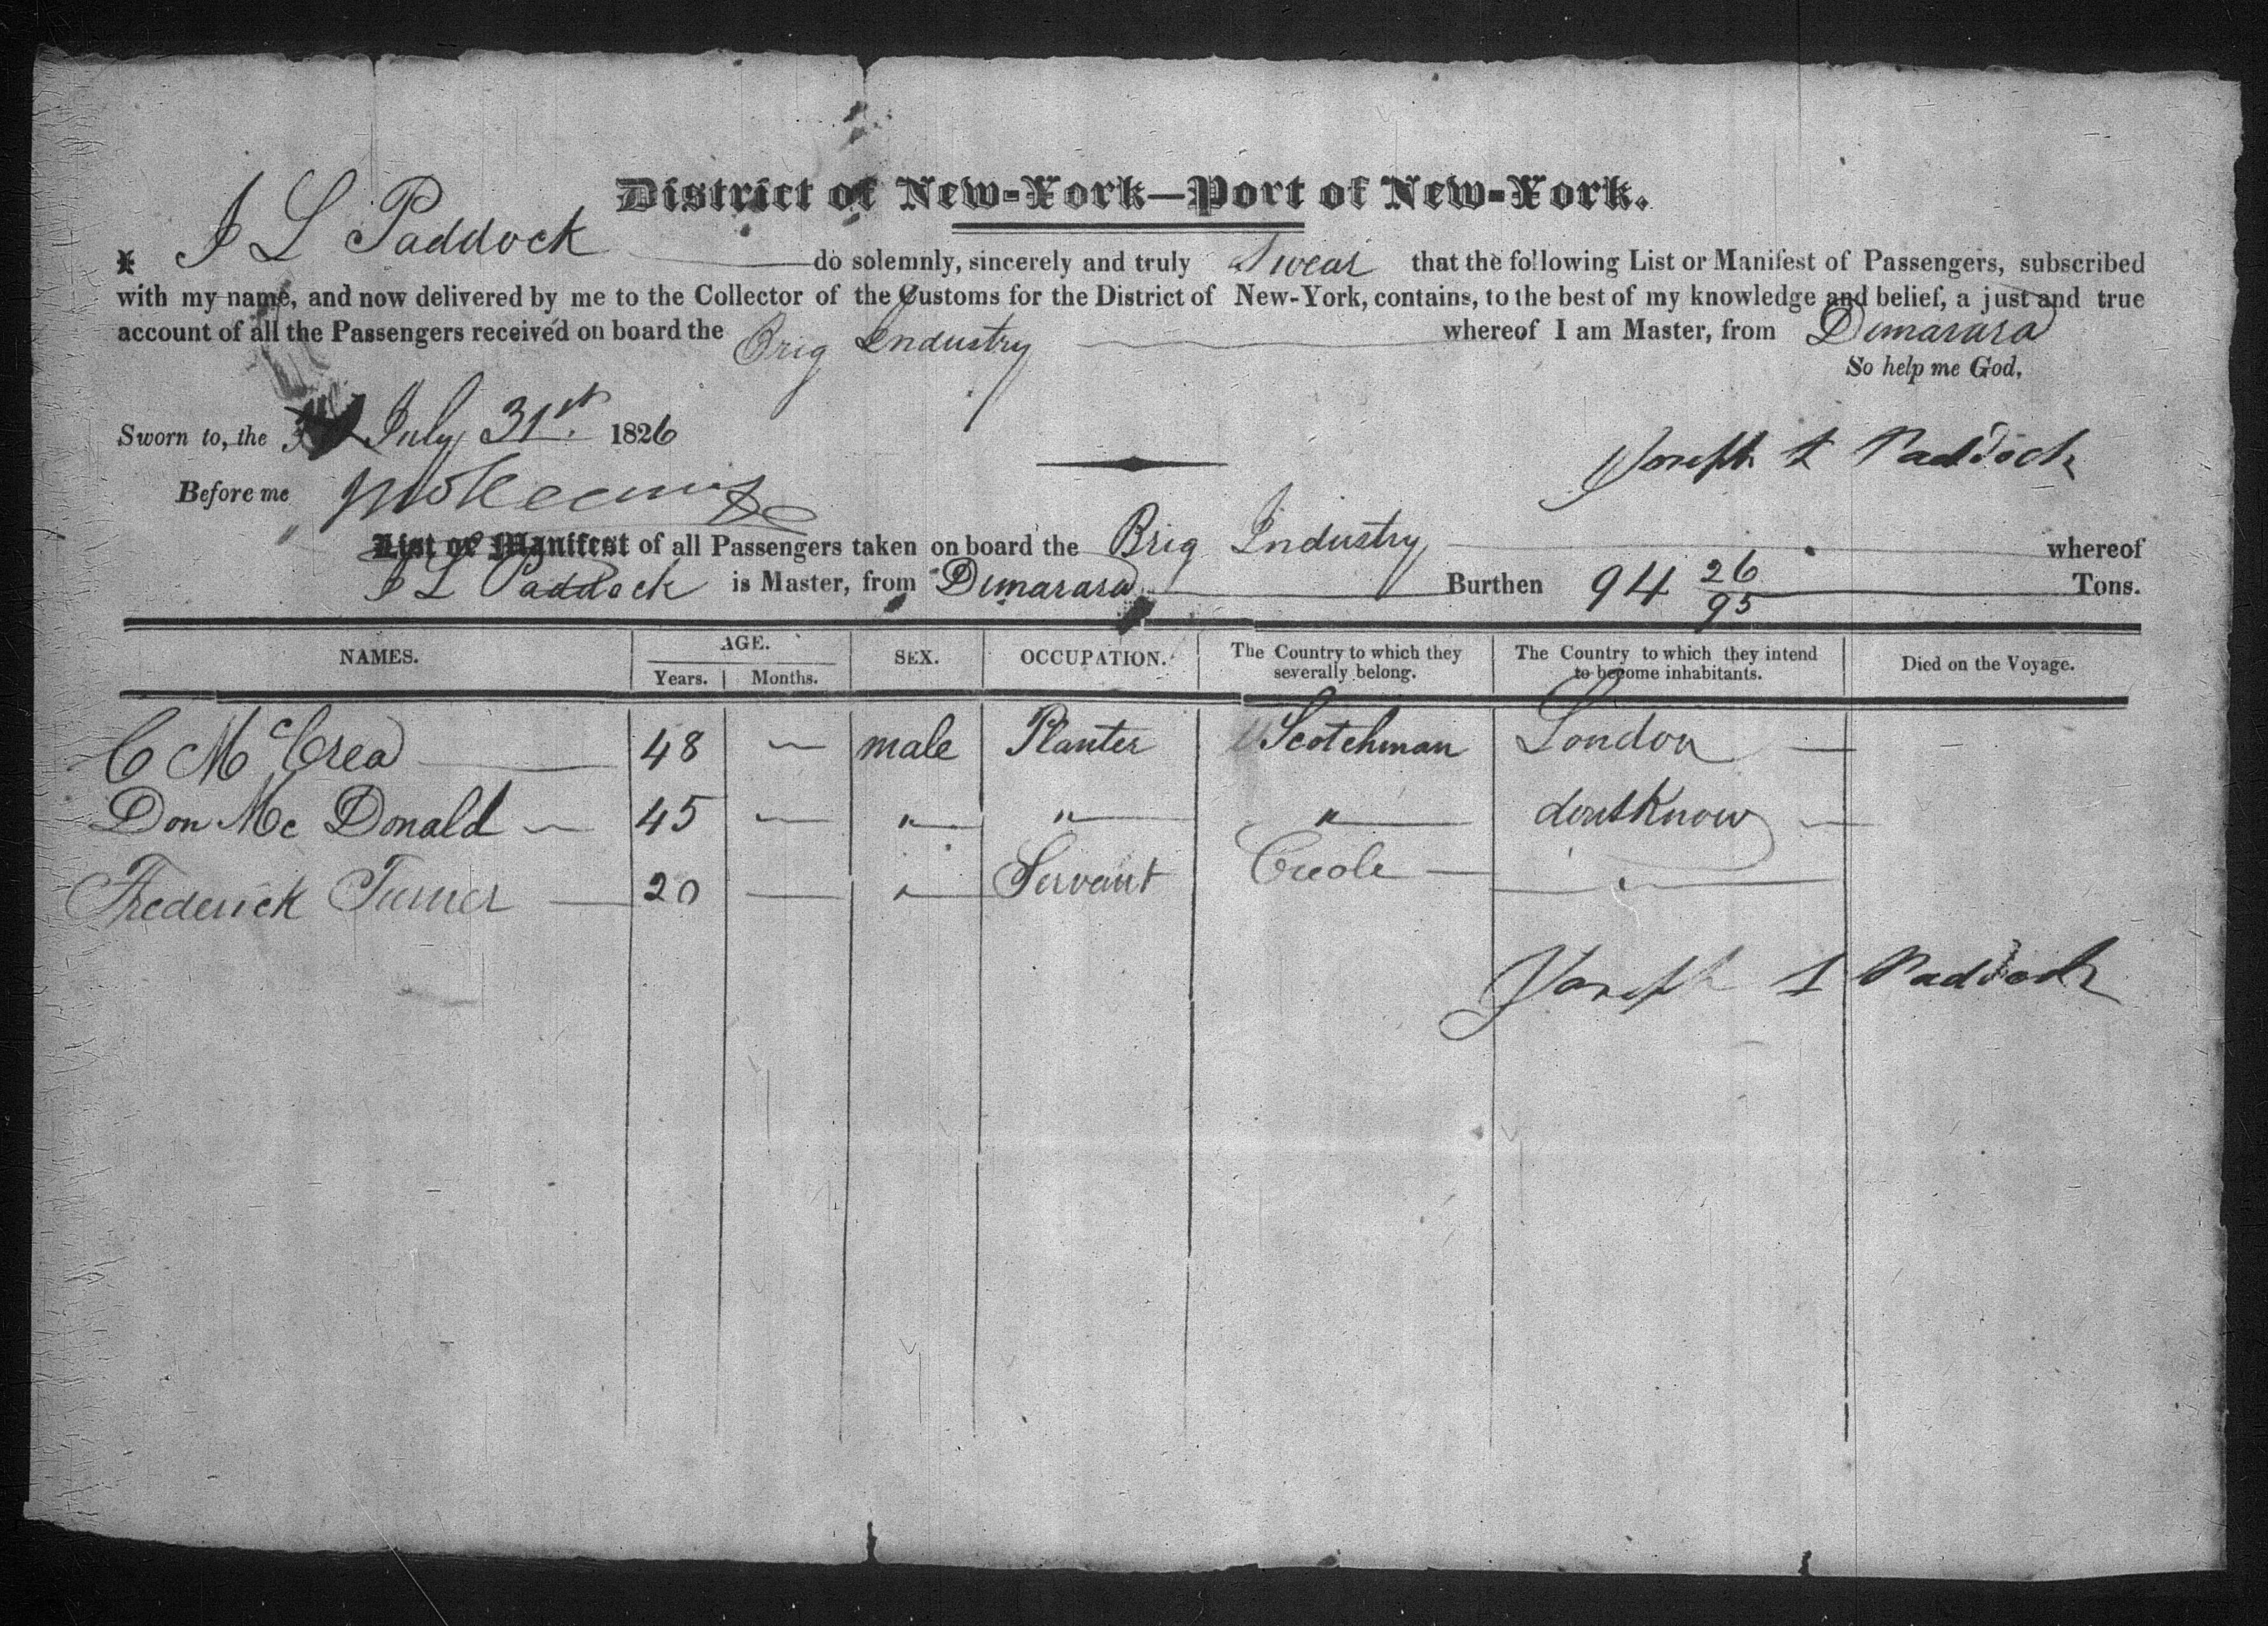 District of New-York—Port of New-York.
I J L Paddock do solemnly, sincerely and truly Swear that the following List or Manifest of Passengers, subscribed
with my name, and now delivered by me to the Collector of the Customs for the District of New-York, contains, to the best of my knowledge and belief, a just and true
account of all the Passengers received on board the Brig Industry whereof I am Master, from Dimarara
So help me God,
Sworn to, the July 31st. 1826
Joseph L Paddock
Before me
List or Manifest of all Passengers taken on board the Brig Industry whereof
J L Paddock is Master, from Dimarara Burthen 94 26/95 Tons.
NAMES. AGE. SEX. OCCUPATION. The Country to which they severally belong. The Country to which they intend to become inhabitants. Died on the Voyage.
Years. Months.
C McCrea 48 — male Planter Scotchman London —
Don Mc Donald — 45 — " " " dontknow —
Frederick Turner — 20 — " Servant Creole — "
Joseph L Paddock